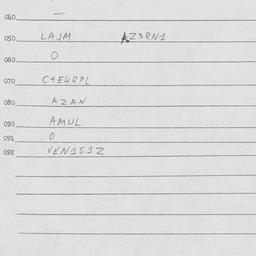 040 —
050 LAJM AZ3RN1
060 0
070 C+E4RPL
080 AZAN
090 AMUL
091 0
092 VEN1S1Z